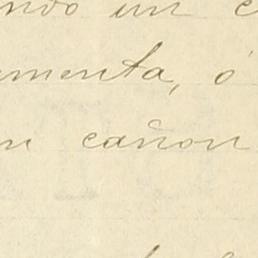 ndo un c
amenta, ó
n cañon